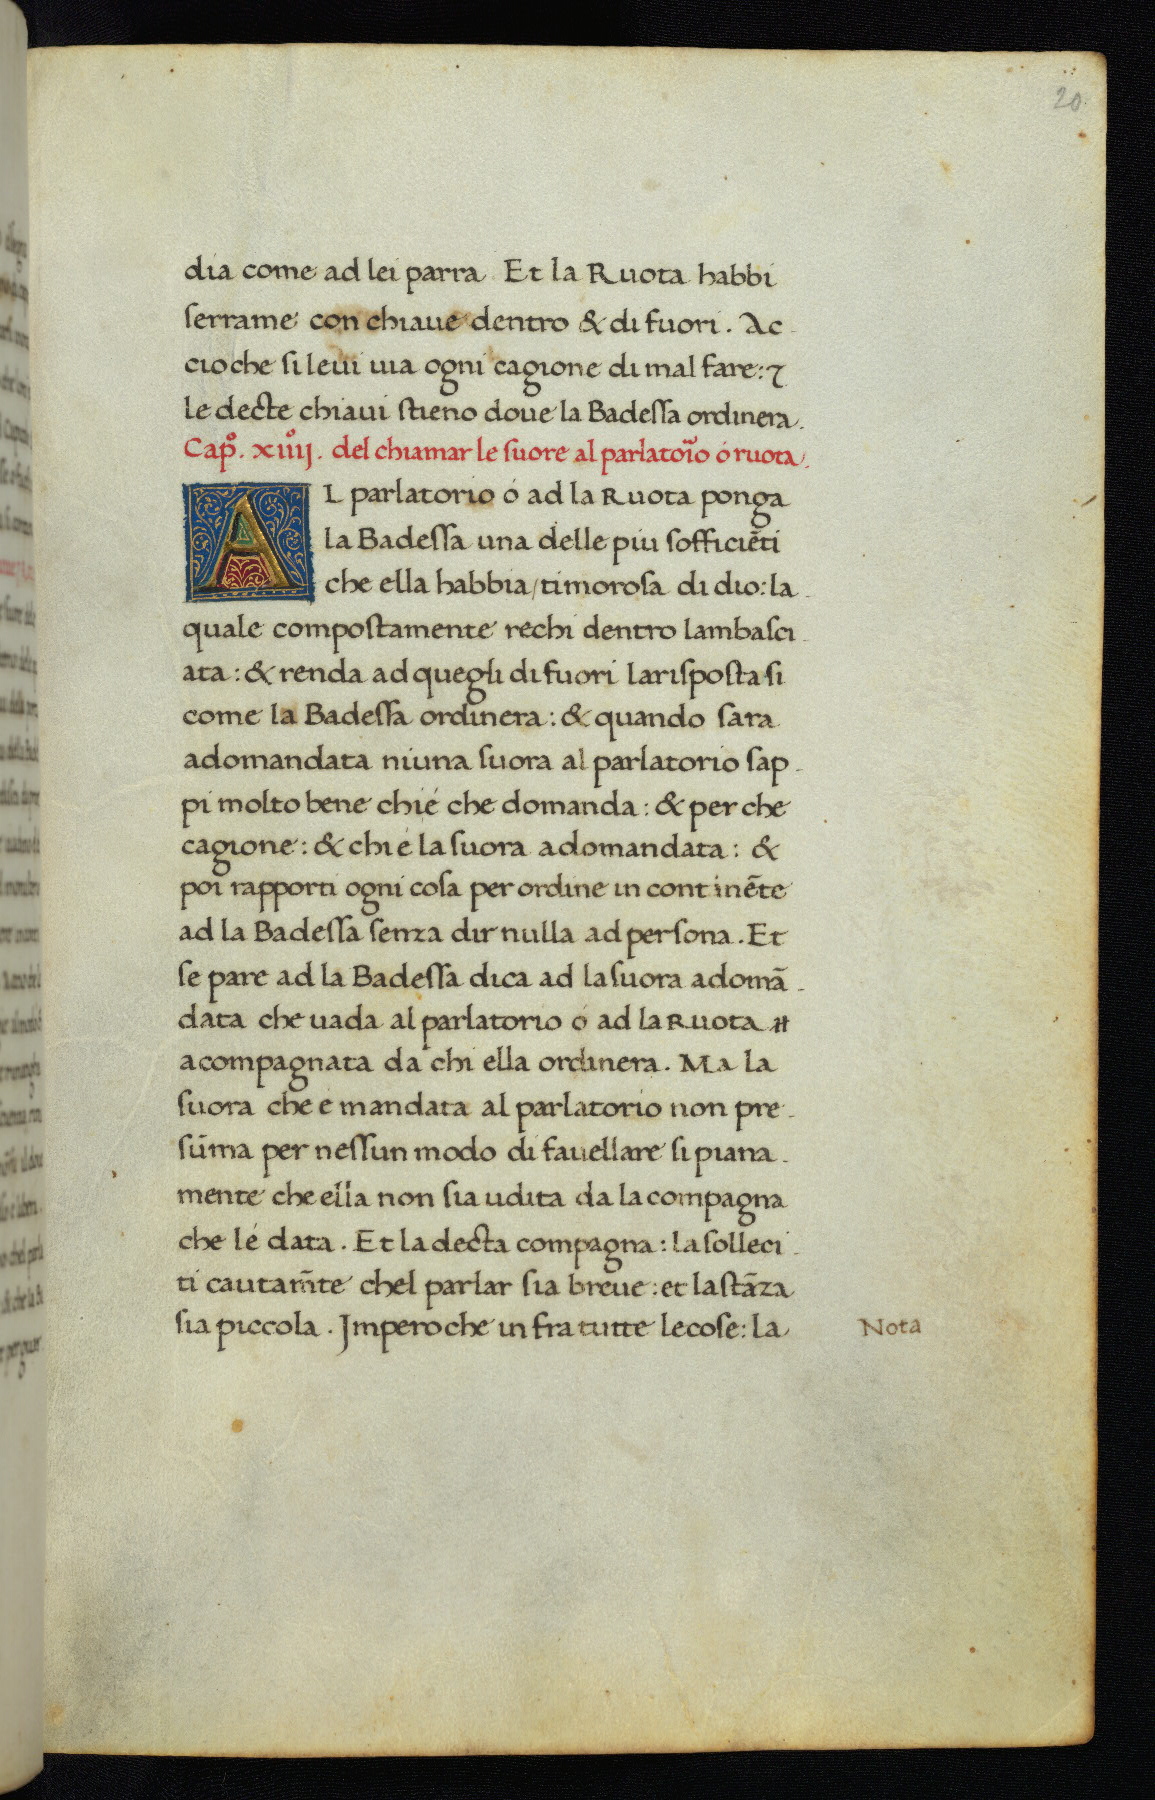 20
dia come ad lei parra. Et la Ruota habbi
serrame con chiaue dentro & di fuori. Ac-
cioche si leui uia ogni cagione di mal fare: ⁊
le decte chiaui stieno doue la Badessa ordinera.
Cap̊. xiiij̊. del chiamar le suore al parlato͞io ó ruota.
AL parlatorio ó ad la Ruota ponga
la Badessa una delle piu sofficiēti
che ella habbia/timorosa di dio: la
quale compostamente rechi dentro lambasci-
ata: & renda ad quegli di fuori la risposta si
come la Badessa ordinera: & quando sara
adomandata niuna suora al parlatorio sap-
pi molto bene chié che domanda: & per che
cagione: & chi é la suora adomandata: &
poi rapporti ogni cosa per ordine in continēte
ad la Badessa senza dir nulla ad persona. Et
se pare ad la Badessa dica ad la suora adomā-
data che uada al parlatorio ó ad la Ruota
acompagnata da chi ella ordinera. Ma la
suora che e mandata al parlatorio non pre-
sūma per nessun modo di fauellare si piana-
mente che ella non sia udita da la compagna
che lé data. Et la decta compagna: la solleci-
ti cautam̄te chel parlar sia breue: et la stāza
sia piccola. Imperoche in fra tutte le cose: la
Nota